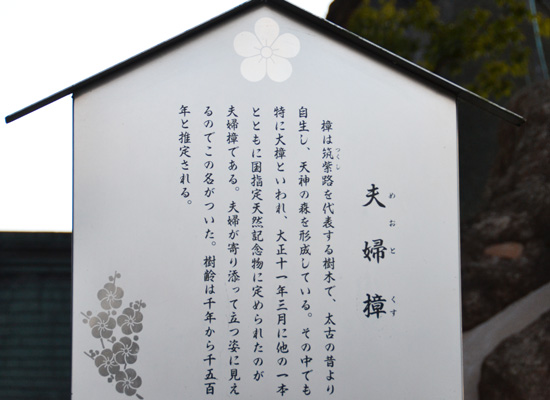 夫婦樟
めおとくす
樟は筑紫路を代表する樹木で、太古の昔より
つくし
自生し、天神の森を形成している。その中でも
特に大樟といわれ、大正十一年三月に他の一本
とともに国指定天然記念物に定められたのが
夫婦樟である。夫婦が寄り添って立つ姿に見え
るのでこの名がついた。樹齢は千年から千五百
年と推定される。